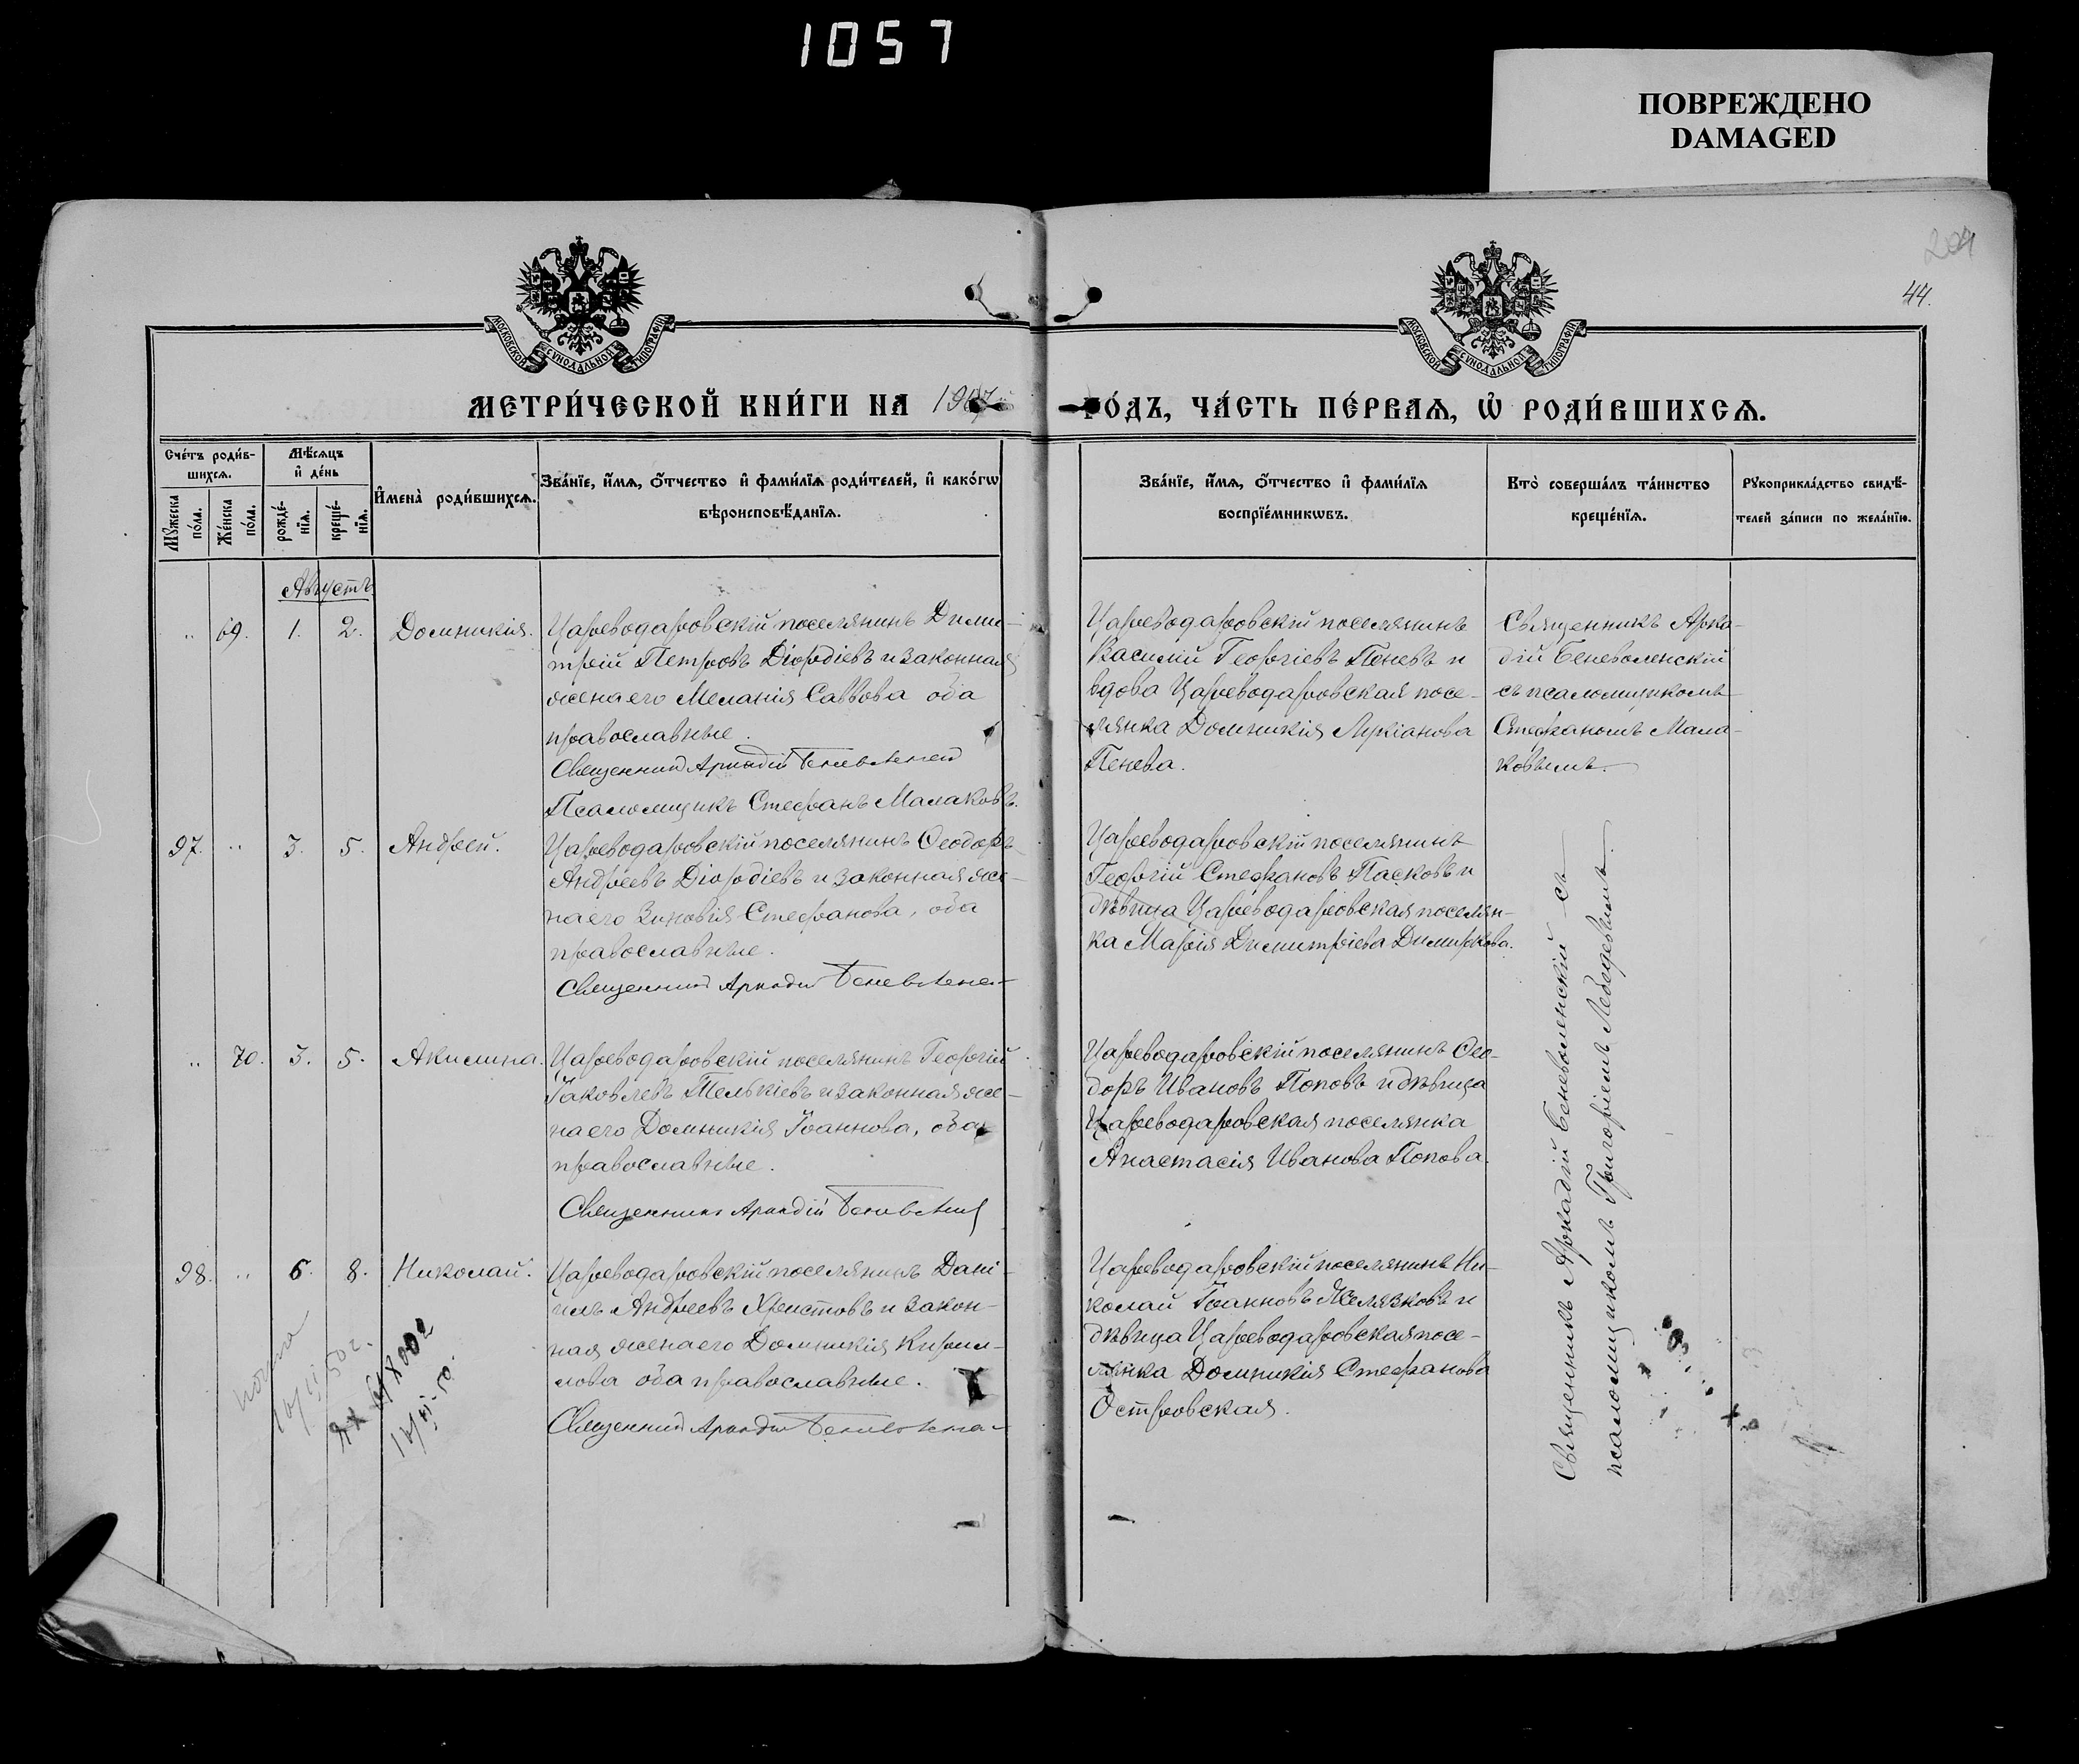 1057
ПОВРЕЖДЕНО
DAMAGED
44.
МОСКОВСКОЙ СѴНОДАЛЬНОЙ ТИПОГРАФІИ
МОСКОВСКОЙ СѴНОДАЛЬНОЙ ТИПОГРАФІИ
МЕТРИ́ЧЕСКОЙ КНИ́ГИ НА 1907
ГО́ДЪ, ЧА́СТЬ ПЕ́РВАЯ, Ѡ РОДИ́ВШИХСЯ.
Сче́тъ роди́в-
шихся.
Мꙋжеска по́ла.
Же́нска по́ла.
Мѣ́сяцъ
и҆ де́нь
рожде́-
нїя.
креще́-
нїя.
И҆мена̀ роди́вшихся.
Зва́нїе, и҆́мя, ѻ҆́тчество и҆ фами́лїя роди́телей, и҆ како́гѡ
вѣроисповѣ́данїя.
Зва́нїе, и҆́мя, ѻ҆́тчество и҆ фами́лїя
воспрїе́мникѡвъ.
Кто̀ соверша́лъ та́инство
креще́нїя.
Рꙋкоприкла́дство свидѣ́-
телей за́писи по жела́нїю.
Августъ
„ 69. 1. 2. Домникія.
Цареводаровскій поселянинъ Дими-
трій Петровъ Діордіевъ и законная
жена его Меланія Саввова оба
православные.
Священникъ Аркадій Беневоленскій
Псаломщикъ Стефанъ Малаковъ.
Цареводаровскій поселянинъ
Василій Георгіевъ Пеневъ и
вдова Цареводаровская посе-
лянка Домникія Лукіанова
Пенева.
Священникъ Арка-
дій Беневоленскій
съ псаломщикомъ
Стефаномъ Мала-
ковымъ.
97. „ 3. 5. Андрей.
Цареводаровскій поселянинъ Ѳеодоръ
Андреевъ Діордіевъ и законная же-
на его Зиновія Стефанова, оба
православные.
Священникъ Аркадій Беневоленскій
Цареводаровскій поселянинъ
Георгій Стефановъ Пасковъ и
дѣвица Цареводаровская поселян-
ка Марія Димитріева Димиркова.
„ 70. 3. 5. Акилина.
Цареводаровскій поселянинъ Георгій
Іаковлевъ Тельпіевъ и законная же-
на его Домникія Іоаннова, оба
православные.
Священникъ Аркадій Беневоленскій
Цареводаровскій поселянинъ Ѳео-
доръ Ивановъ Поповъ и дѣвица
Цареводаровская поселянка
Анастасія Иванова Попова.
98. „ 6. 8. Николай.
Цареводаровскій поселянинъ Дані-
илъ Андреевъ Христовъ и закон-
ная жена его Домникія Кирил-
лова оба православные.
Священникъ Аркадій Беневоленскій
Цареводаровскій поселянинъ Ни-
колай Іоанновъ Желязковъ и
дѣвица Цареводаровская посе-
лянка Домникія Стефанова
Островская.
Священникъ Аркадій Беневоленскій съ
псаломщикомъ Григоріемъ Лебедевымъ.